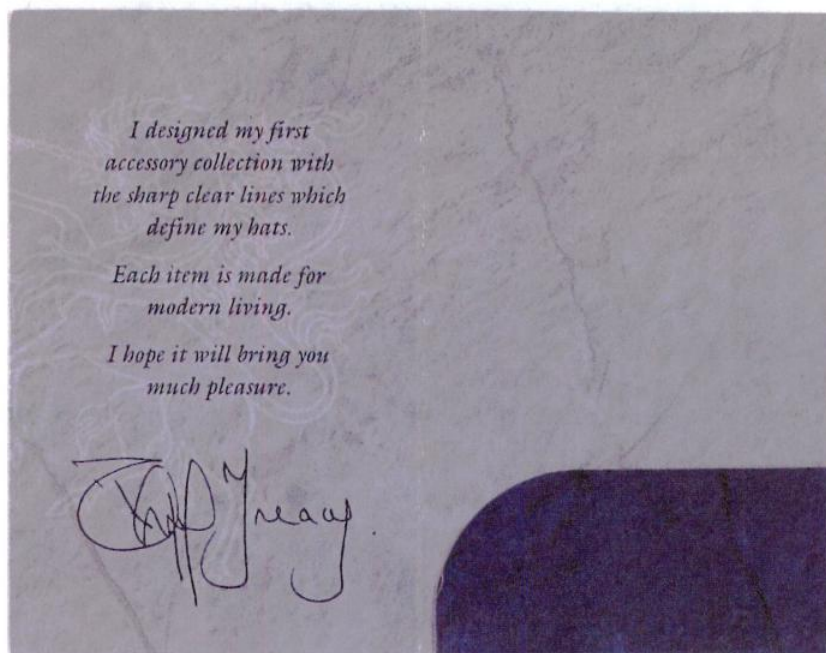 I designed my first
accessory collection with
the sharp clear lines which
define my hats.
Each item is made for
modern living.
I hope it will bring you
much pleasure.
Treacy